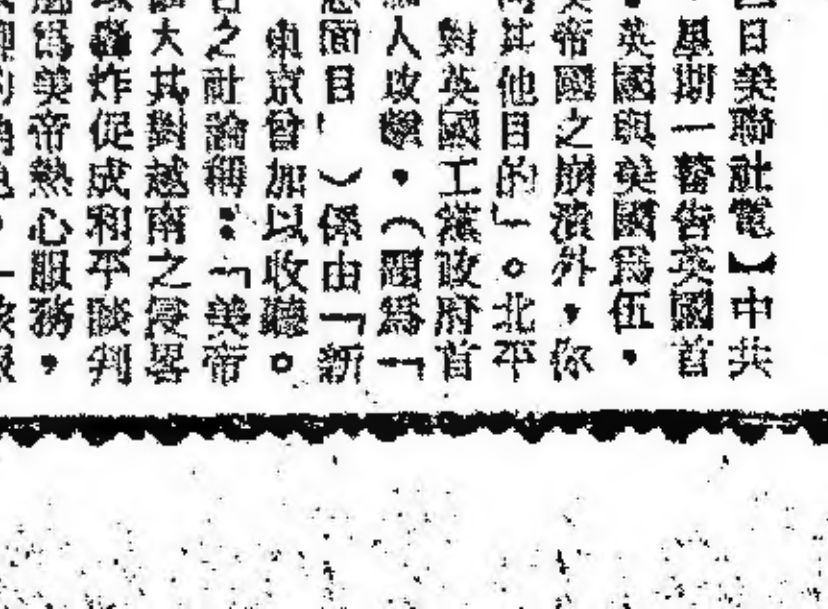 日美聯社電】中共
星期一警告英國首
英國與美國爲伍，
帝國之崩潰外，你
其他目的」。北平
對英國工黨政府首
人攻擊，（題爲「
面目」）係由「新
東京曾加以收聽。
之社論稱：「美帝
大其對越南之侵畧
炸促成和平談判
爲美帝熱心服務，